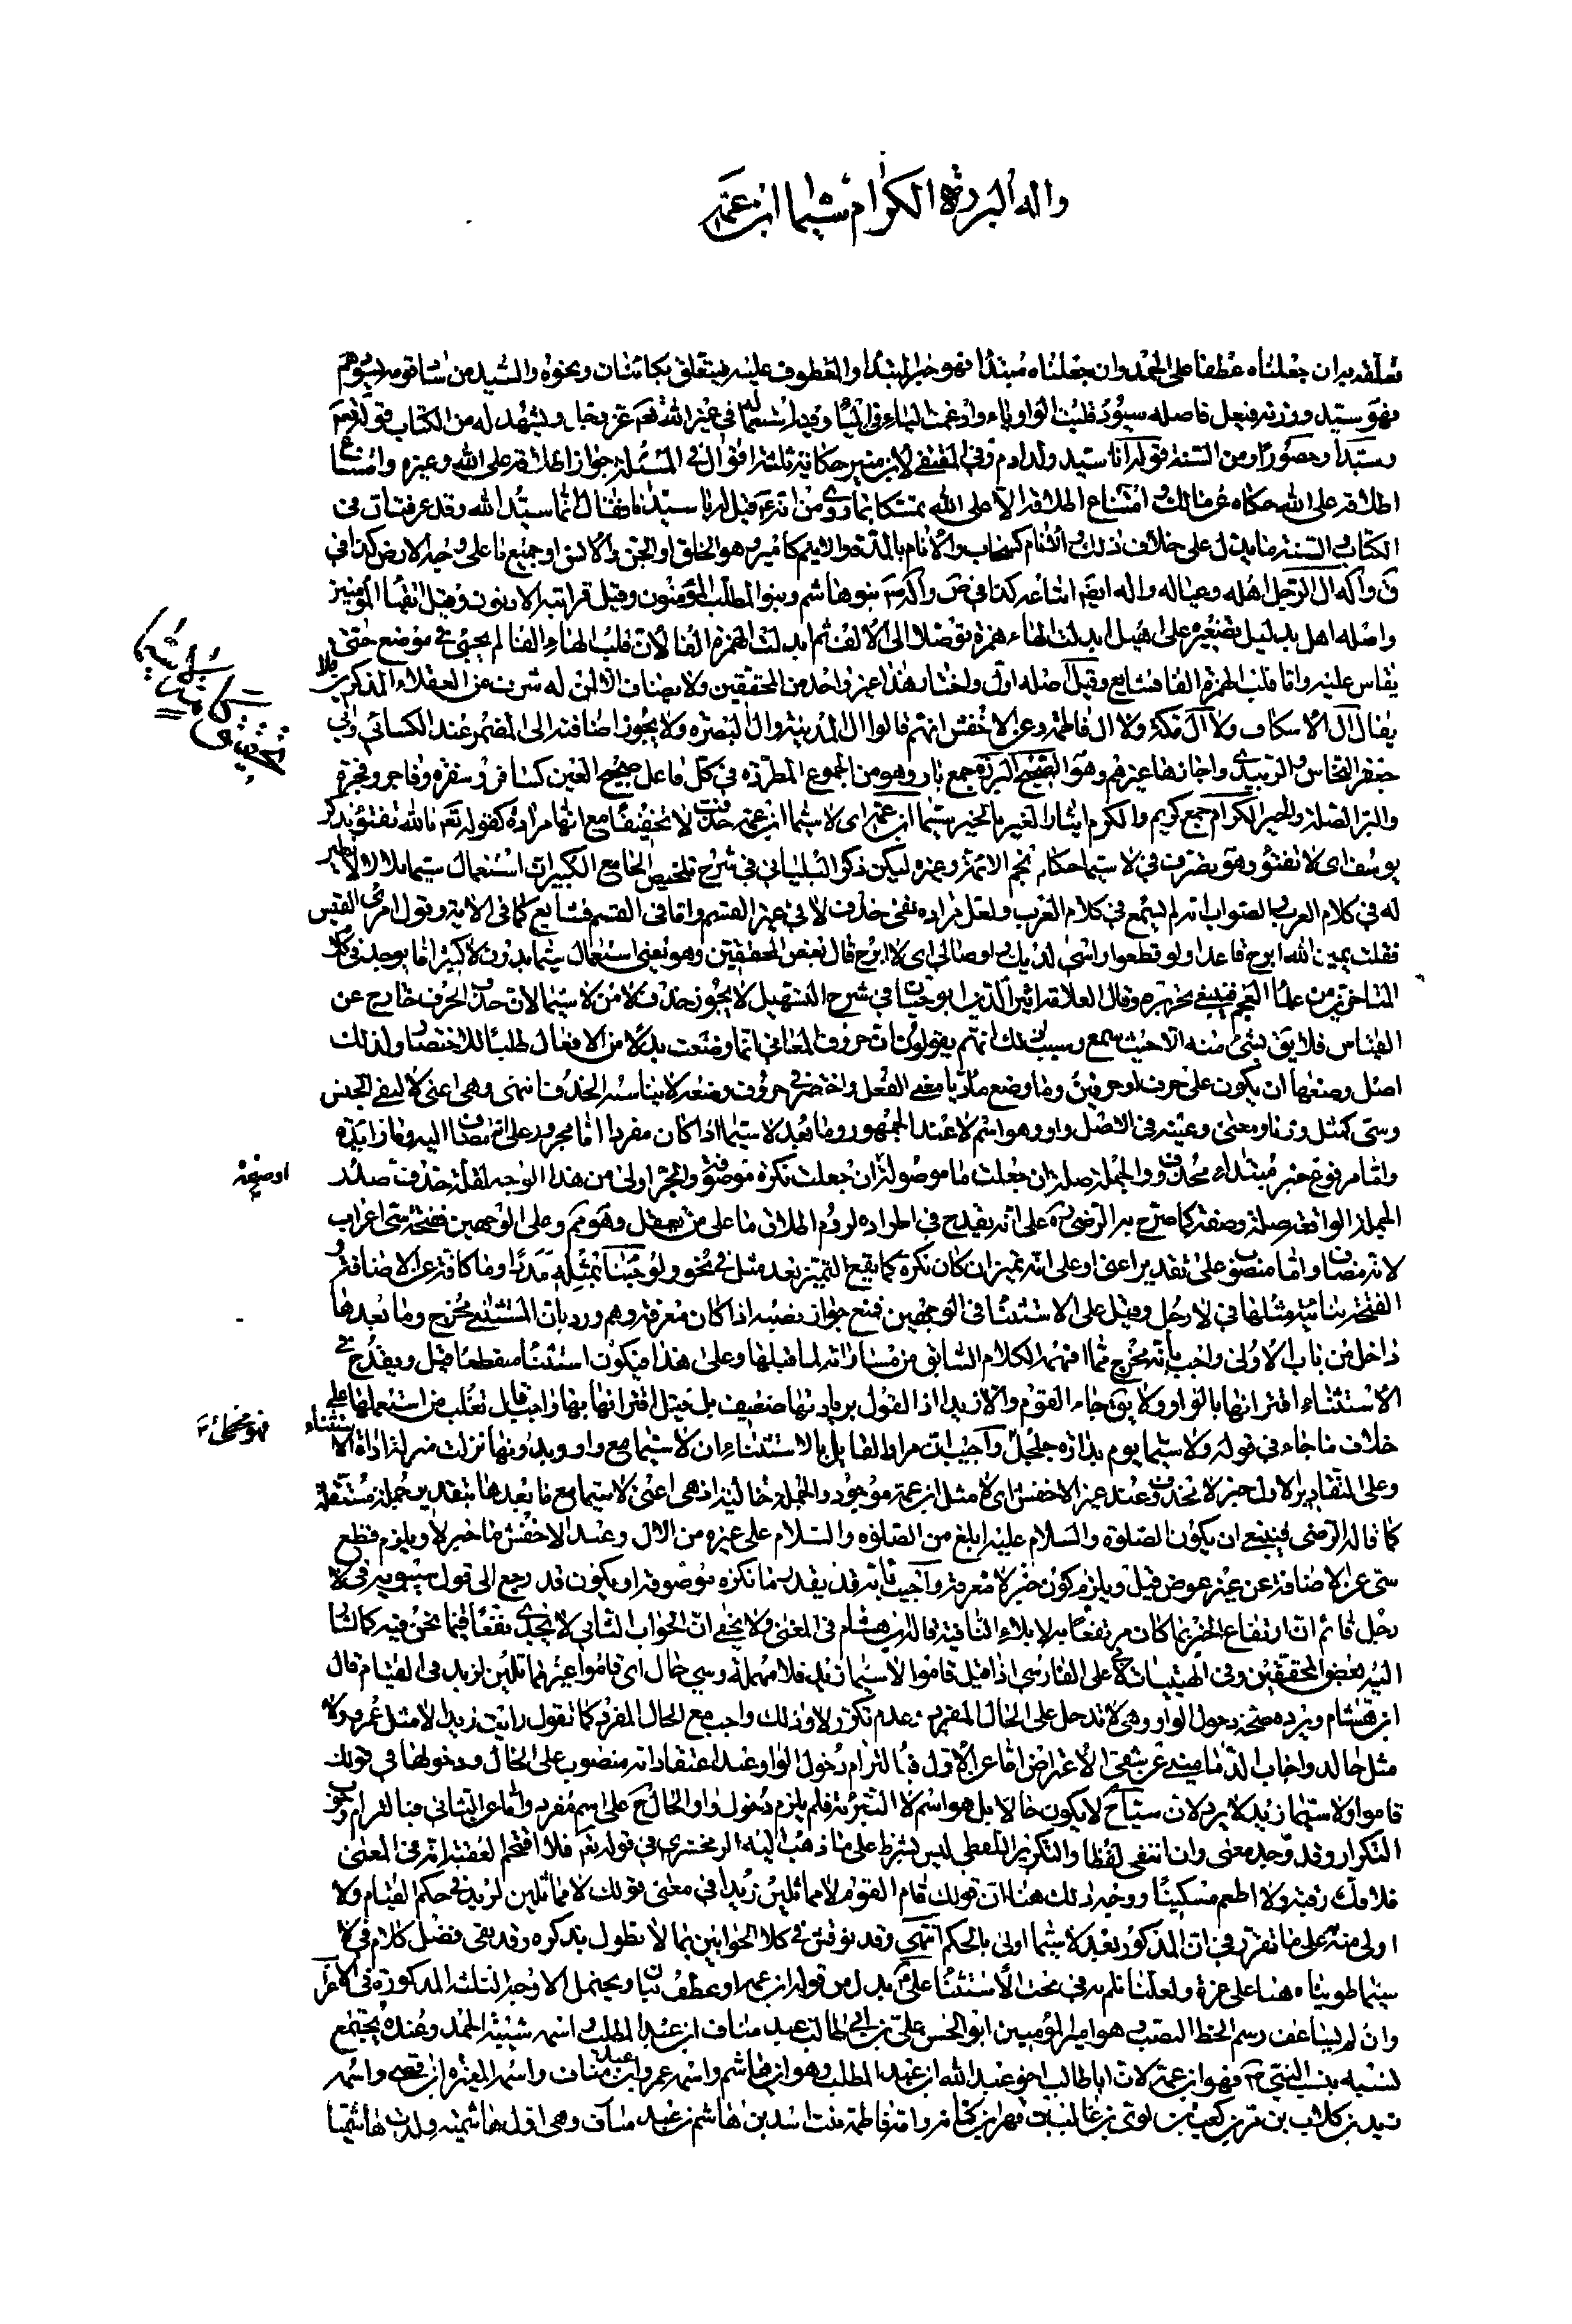 واله البررة الكرام سيما ابن عمه
تعلقه به ان جعلناه عطفا على الحمد وان جعلناه مبتدأ فهو خبر المبتدا والمعطوف عليه فيتعلق بكائنات ونحوه والسيد من ساد قومه يسودهم
فهو سيد ووزنه فيعل فاصله سيود قلبت الواو ياء وادغمت الياء في الياء وفي استعماله في غير الله تعم عز وجل ويشهد له من الكتاب قوله تعم
وسيدا وحصورا ومن السنة قوله انا سيد ولد ادم وفي المقتفى لابن منير حكاية ثلثة اقوال في المسئلة جواز اطلاقه على الله وغيره وامتناع
اطلاقه على الله حكاه عن مالك وامتناع اطلاقه الا على الله متمسكا بما روي من انه قيل له يا سيدنا فقال انما سيد الله وقد عرفت ان في
الكتاب والسنة ما يدل على خلاف ذلك والانام كسحاب والآنام بالمدة والانيم كامير هو الخلق او الجن والانس او جميع ما على وجه الارض كذا في
ق واله آل الرجل اهله وعياله واله ايضا اتباعه كذا في ص وآله بنو هاشم وبنو المطلب المؤمنون وقيل قرابته الادنون وقيل اتقياء المؤمنين
واصله اهل بدليل تصغيره على اهيل ابدلت الهاء همزة توصلا الى الالف ثم ابدلت الهمزة الفا لان قلب الهاء الفا لم يجئ في موضع حتى
يقاس عليه واما قلب الهمزة الفا فشايع وقيل اصله اول واختار هذا غير واحد من المحققين ولا يضاف الا لمن له شرف من العقلاء المذكرين فلا
يقال آل الاسكاف ولا آل مكة ولا آل فاطمة وعن الاخفش انهم قالوا آل المدينة وآل البصرة ولا يجوز اضافته الى المضمر عند الكسائي وابي
جعفر النحاس والزبيدي واجازها غيرهم وهو الصحيح البررة جمع بار وهو من الجموع المطردة في كل فاعل صحيح العين كسافر وسفرة وفاجر وفجرة
والبر الصلة والخير الكرام جمع كريم والكرم ايثار الغير بالخير سيما ابن عمه اى لا سيما ابن عمه حذفت لا تخفيفا مع انها مرادة كقوله تعم تالله تفتؤ تذكر
يوسف اى لا تفتؤ وهو تصرف في لا سيما حكاه نجم الائمة وغيره ليكن ذكر البلياني في شرح تلخيص الجامع الكبير ان استعمال سيما بلا لا لا نظير
له في كلام العرب والصواب انه لم يسمع في كلام العرب ولعل مراده نفى حذف لا في غير القسم واما في القسم فشايع كما في الاية وقول امرئ القيس
فقلت يمين الله ابرح قاعدا ولو قطعوا راسي لديك واوصالي اى لا ابرح قال بعض المحققين وهو يعنى استعمال سيما بدون لا كثيرا ما يوجد في كلام
المتاخرين من علماء العجم فينبغي تحريره وقال العلامة اثير الدين ابو حيان في شرح التسهيل لا يجوز حذف لا من لا سيما لان حذف الحرف خارج عن
القياس فلا يق بشئ منه الا حيث سمع وسبب ذلك انهم يقولون ان حروف المعاني انما وضعت بدلا من الافعال طلبا للاختصار ولذلك
اصل وضعها ان يكون على حرف او حرفين وما وضع مؤديا معنى الفعل واختصر في حروف وضعه لا يناسبه الحذف انتهى وهي اعنى لا لنفي الجنس
وسى كمثل وزنا ومعنى وعينه في الاصل واو وهو اسم لا عند الجمهور وما بعد لا سيما اذا كان مفردا اما مجرور على انه مضاف اليه وما زايدة
واما مرفوع خبر مبتداء محذوف والجملة صلة ان جعلت ما موصولة ان جعلت نكرة موصوفة والجر اولى من هذا الوجه لقلة حذف صدر
الجملة الواقعة صلة وصفة كما صرح به الرضى ره على انه يقدح في اطراده لزوم اطلاق ما على من يعقل وهو مم وعلى الوجهين ففتحة سى اعراب
لانه مضاف واما منصوب على تقدير اعنى او على انه تميز ان كان نكرة كما يقع التميز بعد مثل في نحو ولو جئنا بمثله مددا وما كافة عن الاضافة و
الفتحة بنائية مثلها في لا رجل وقيل على الاستثناء في الوجهين فمنع جواز نصبه اذا كان معرفة وهم ورد بان المستثنى مخرج وما بعدها
داخل من باب الاولى واجيب بانه مخرج مما افهمه الكلام السابق من مساواته لما قبلها وعلى هذا فيكون استثناء منقطعا قيل ويقدح في
الاستثناء اقترانها بالواو ولا يق جاء القوم والا زيدا اذ القول بزيادتها ضعيف بل قيل اقترانها بها واجب قال ثعلب من استعملها على
خلاف ما جاء في قوله ولا سيما يوم بدارة جلجل واجيب ان مراد القايل بالاستثناء ان لا سيما مع واو وبدونها نزلت منزلة اداة الاستثناء
وعلى التقادير الاول خبر لا محذوف وعند غير الاخفش اى لا مثل ابن عمه موجود والجملة حالية اذ هي اعنى لا سيما مع ما بعدها بتقدير جملة مستقلة
كما قاله الرضى فينبغي ان يكون الصلوة والسلام عليه ابلغ من الصلوة والسلام على غيره من الآل وعند الاخفش ما خبر لا ويلزم قطع
سى عن الاضافة عن غير عوض قيل ويلزم كون خبر لا معرفة واجيب بانه قد يقدر ما نكرة موصوفة او يكون قد رجع الى قول سيبويه في لا
رجل قائم ان ارتفاع الخبر بما كان مرتفعا به لا بلاء النافية قاله ابن هشام في المغنى ولا يخفى ان الجواب الثاني لا يجدي نفعا فيما نحن فيه كما اشار
اليه بعض المحققين وفي الهيتيات لابي على الفارسي اذا قيل قاموا لا سيما زيد فلا مهملة وسي حال اى قاموا غير مماثلين لزيد في القيام قال
ابن هشام ويرده صحة دخول الواو وهي لا تدخل على الحال المفردة وعدم تكرر لا وذلك واجب مع الحال المفردة كما تقول رايت زيدا لا مثل عمرو ولا
مثل خالد واجاب الدماميني عن شقي الاعتراض اما عن الاول فبالتزام دخول الواو عند اعتقاد انه منصوب على الحال ودخولها في قولك
قاموا ولا سيما زيد لا يرد لان سى ح لا يكون حالا بل هو اسم لا التبرئة فلم يلزم دخول واو الحال ح على اسم مفرد واما عن الثاني فبالتزام وجوب
التكرار وقد وجد معنى وان انتفى لفظا والتكرير اللفظي ليس بشرط على ما ذهب اليه الزمخشري في قوله تعم فلا اقتحم العقبة انه في المعنى
فلا فك رقبة ولا اطعم مسكينا ووجه ذلك هنا ان قولك قام القوم لا مماثلين زيدا في معنى قولك لا مماثلين لزيد في حكم القيام ولا
اولى منه على ما تقرر في ان المذكور بعد لا سيما اولى بالحكم انتهى وقد نوقش في كلا الجوابين بما لا نطول بذكره وقد بقى فضل كلام في لا
سيما طويناه هنا على غرة ولعلنا نلم به في بحث الاستثناء على بدل من قوله ابن عمه او عطف بيان ويحتمل الاوجه الثلثة المذكورة في الاعراب
وان لم يساعف رسم الخط النصب هو امير المؤمنين ابو الحسن على بن ابي طالب عبد مناف ابن عبد المطلب اسمه شيبة الحمد وعنده يجتمع
نسبه بنسب النبي ص فهو ابن عمه لان ابا طالب اخو عبد الله ابن عبد المطلب وهو ابن هاشم واسمه عمرو ابن عبد مناف واسمه المغيرة ابن قصى واسمه
زيد بن كلاب بن مرة بن كعب بن لوى بن غالب بن فهر بن كنانه وامه فاطمة بنت اسد بن هاشم بن عبد مناف وهي اول هاشمية ولدت هاشميا
او صفة